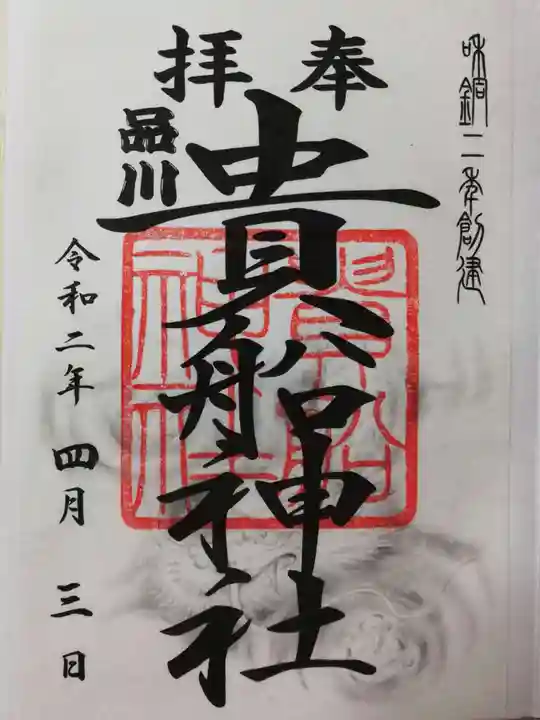 和銅二年創建
奉拝
品川
貴船神社
貴船神社
令和二年四月三日